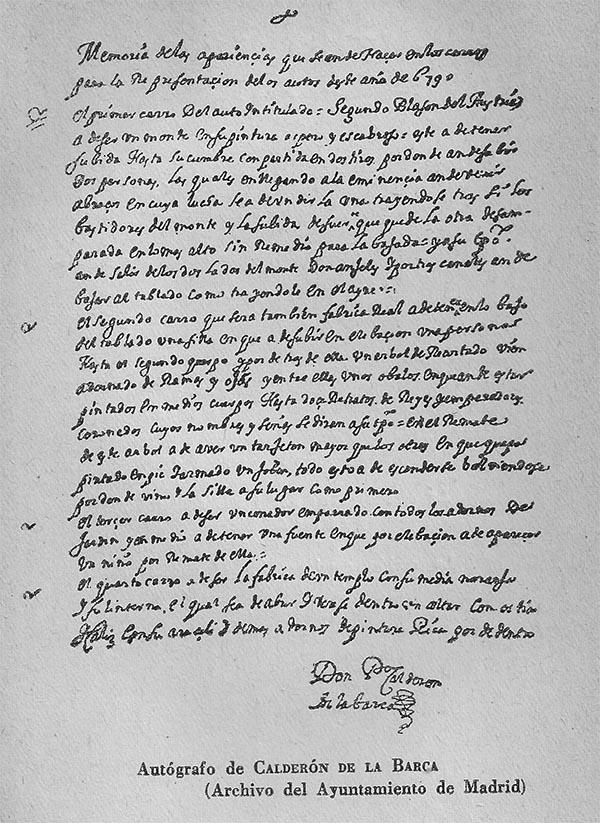 Memoria de las apariencias que se an de haçer en los carros
para la Representacion de los autos deste año de 679
el primer carro Del auto Intitulado = Segundo Blason del Austria
a de ser un monte en su pintura aspero y escabroso = este a de tener
subida Hasta su cumbre con partida en dos tiros, por donde an de subir
Dos personas, las quales en llegando a la eminencia an de venir
a braços en cuya lucha se a de undir la una trayendose tras si los
bastidores del monte y la subida de suerte que quede la otra desam
parada en lo mas alto sin Remedio para la bajada = y a su tpo.
an de salir de los dos lados del monte Dos angeles y por tres canales an de
bajar al tablado como trayendole en el ayre =
el segundo carro que sera tambien fabrica Real a de tener en lo bajo
del tablado una silla en que a de subir en elebaçion una persona
Hasta el segundo cuerpo y por detras de ella un arbol de Recortado
adornado de Ramas y ojas y entre ellas unos obalos en que an de estar
pintados en medios cuerpos Hasta doçe Retratos de Reyes y emperadores
coronados cuyos nombres y señas se diran a su tpo = en el Remate
de este arbol a de aver un tarjeton mayor que los otros en que
pintado en pie Jurando un Joben, todo esto a de esconderse bolviendose
por donde vino y la silla a su lugar como primero
el terçer carro a de ser un cenador emparrado con todos los adornos De
Jardin y en medio a de tener una fuente en que por elebaçion a de apareçer
Un niño por Remate de ella =
el quarto carro a de ser la fabrica de un templo con su media naranja
y su linterna, el qual se a de abrir y verse dentro un altar con ostia
Kaliz con su araçeli y demas adornos de pintura Rica por de dentro
Don Po Calderon
de la barca
Autógrafo de CALDERÓN DE LA BARCA
(Archivo del Ayuntamiento de Madrid)